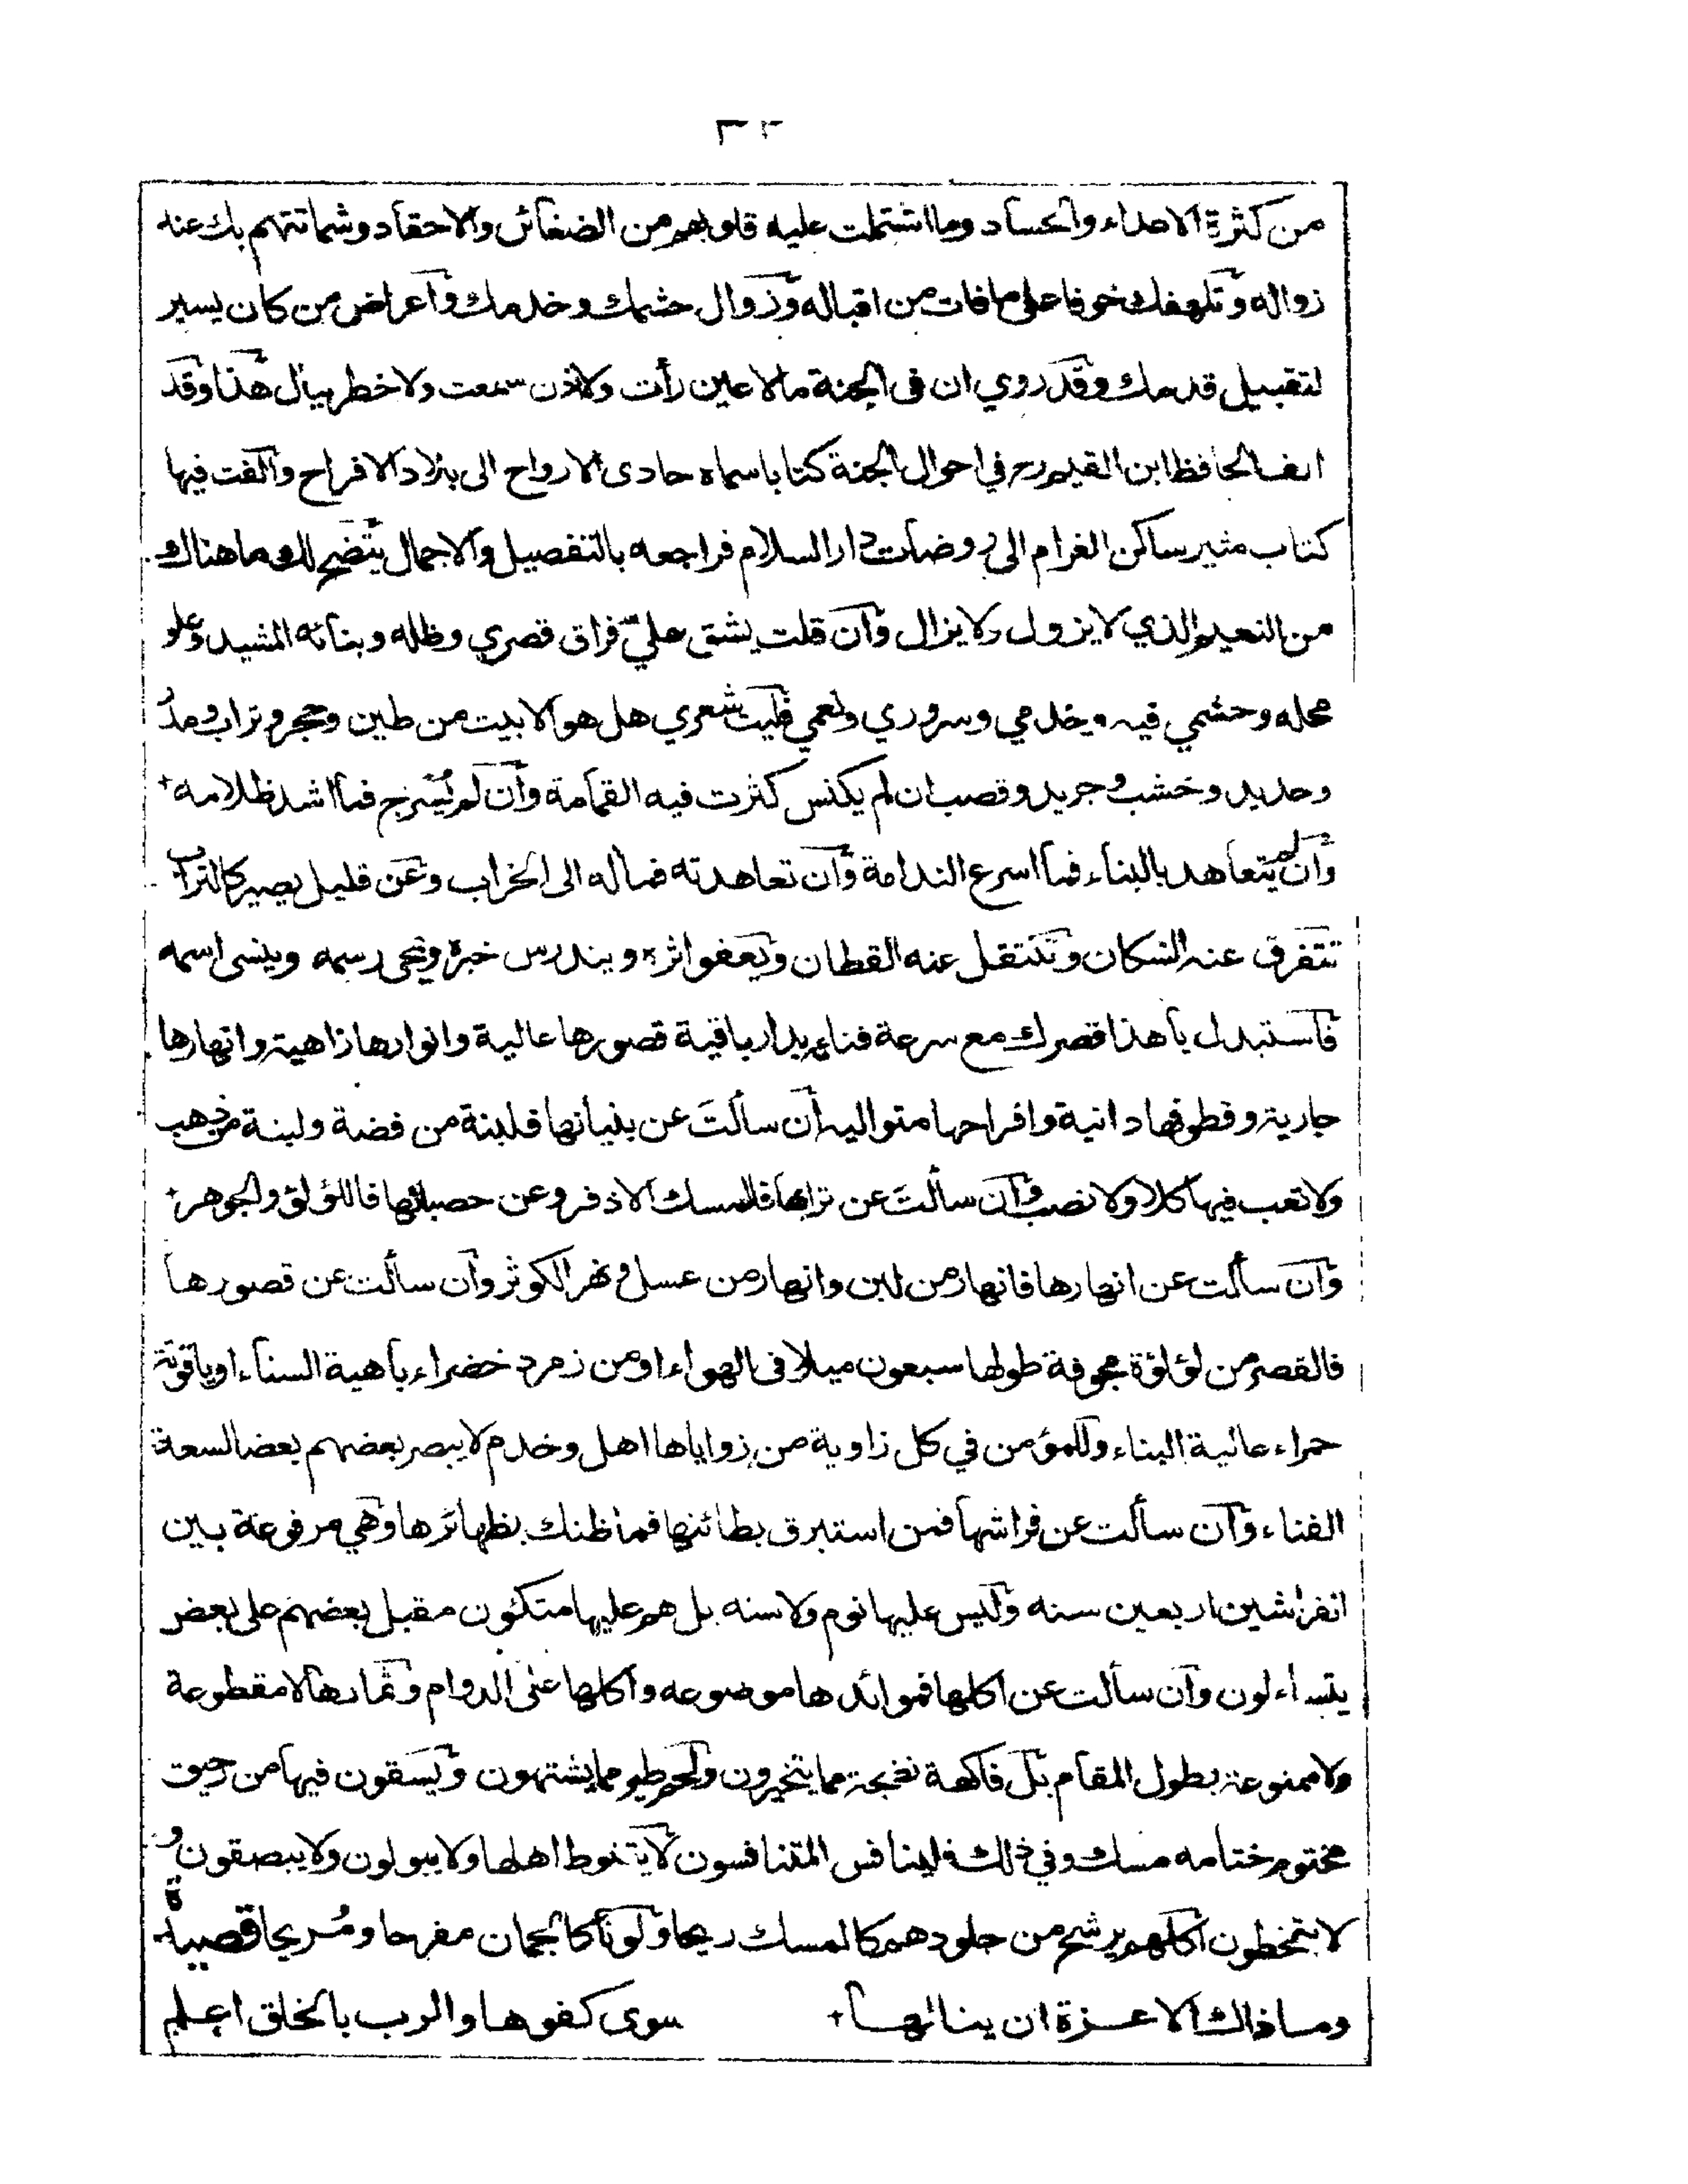 ٣٢
من كثرة الاعداء والحساد وما اشتملت عليه قلوبهم من الضغائن والاحقاد وشماتتهم بك عند
زواله وتلهفك خوفا على ما فات من اقباله وزوال حشمك وخدمك واعراض من كان يسير
لتقبيل قدمك وقد روي ان فى الجنة ما لا عين رأت ولا اذن سمعت ولا خطر ببال هذا وقد
الف الحافظ ابن القيم رح في احوال الجنة كتابا سماه حادى الارواح الى بلاد الافراح والفت فيها
كتاب مثير ساكن الغرام الى روضات دار السلام فراجعه بالتفصيل والاجمال يتضح لك ما هنالك
من النعيم الذي لا يزول ولا يزال وان قلت يشق عليّ فراق قصري وظله وبنائه المشيد وعلو
محله وحشمي فيه وخدمي وسروري ونعمي فليت شعري هل هو الا بيت من طين وحجر وتراب ومدُ
وحديد وخشب وجريد وقصب ان لم يكنس كثرت فيه القمامة وان لم يُسرج فما اشد ظلامه
وان لم يتعاهد بالبناء فما اسرع الندامة وان تعاهدته فمآله الى الخراب وعن قليل يصير كالتراب
تتفرق عنه السكان وتنتقل عنه القطان ويعفو اثره ويندرس خبره ويمحى رسمه وينسى اسمه
فاستبدل يا هذا قصرك مع سرعة فناءه بدار باقية قصورها عالية وانوارها زاهية وانهارها
جارية وقطوفها دانية وافراحها متواليه ان سألتَ عن بنيانها فلبنة من فضة ولبنة من ذهب
ولا تعب فيها كلا ولا نصب وان سألتَ عن ترابها فالمسك الاذفر وعن حصبائها فاللؤلؤ والجوهر
وان سألت عن انهارها فانهار من لبن وانهار من عسل ونهر الكوثر وان سألت عن قصورها
فالقصر من لؤلؤة مجوفة طولها سبعون ميلا فى الهواء او من زمرد خضراء باهية السناء او ياقوتة
حمراء عالية البناء وللمؤمن في كل زاوية من زواياها اهل وخدم لا يبصر بعضهم بعضا لسعة
الفناء وان سألت عن فراشها فمن استبرق بطائنها فما ظنك بظهائرها وهي مرفوعة بين
الفراشين اربعين سنه وليس عليها نوم ولا سنه بل هم عليها متكئون مقبل بعضهم على بعض
يتساءلون وان سألت عن اكلها فموائدها موضوعه واكلها على الدوام وثمارها لا مقطوعة
ولا ممنوعة بطول المقام بل فاكهة نضيجة مما يتخيرون ولحم طير مما يشتهون ويسقون فيها من رحيق
مختوم ختامه مسك وفي ذلك فليتنافس المتنافسون لا يتغوط اهلها ولا يبولون ولا يبصقون و
لا يتمخطون اكلهم يرشح من جلودهم كالمسك ريحا ولونا كالجمان مفرحا ومُريحا
وما ذاك الا عزة ان ينالها سوى كفوها والرب بالخلق اعلم